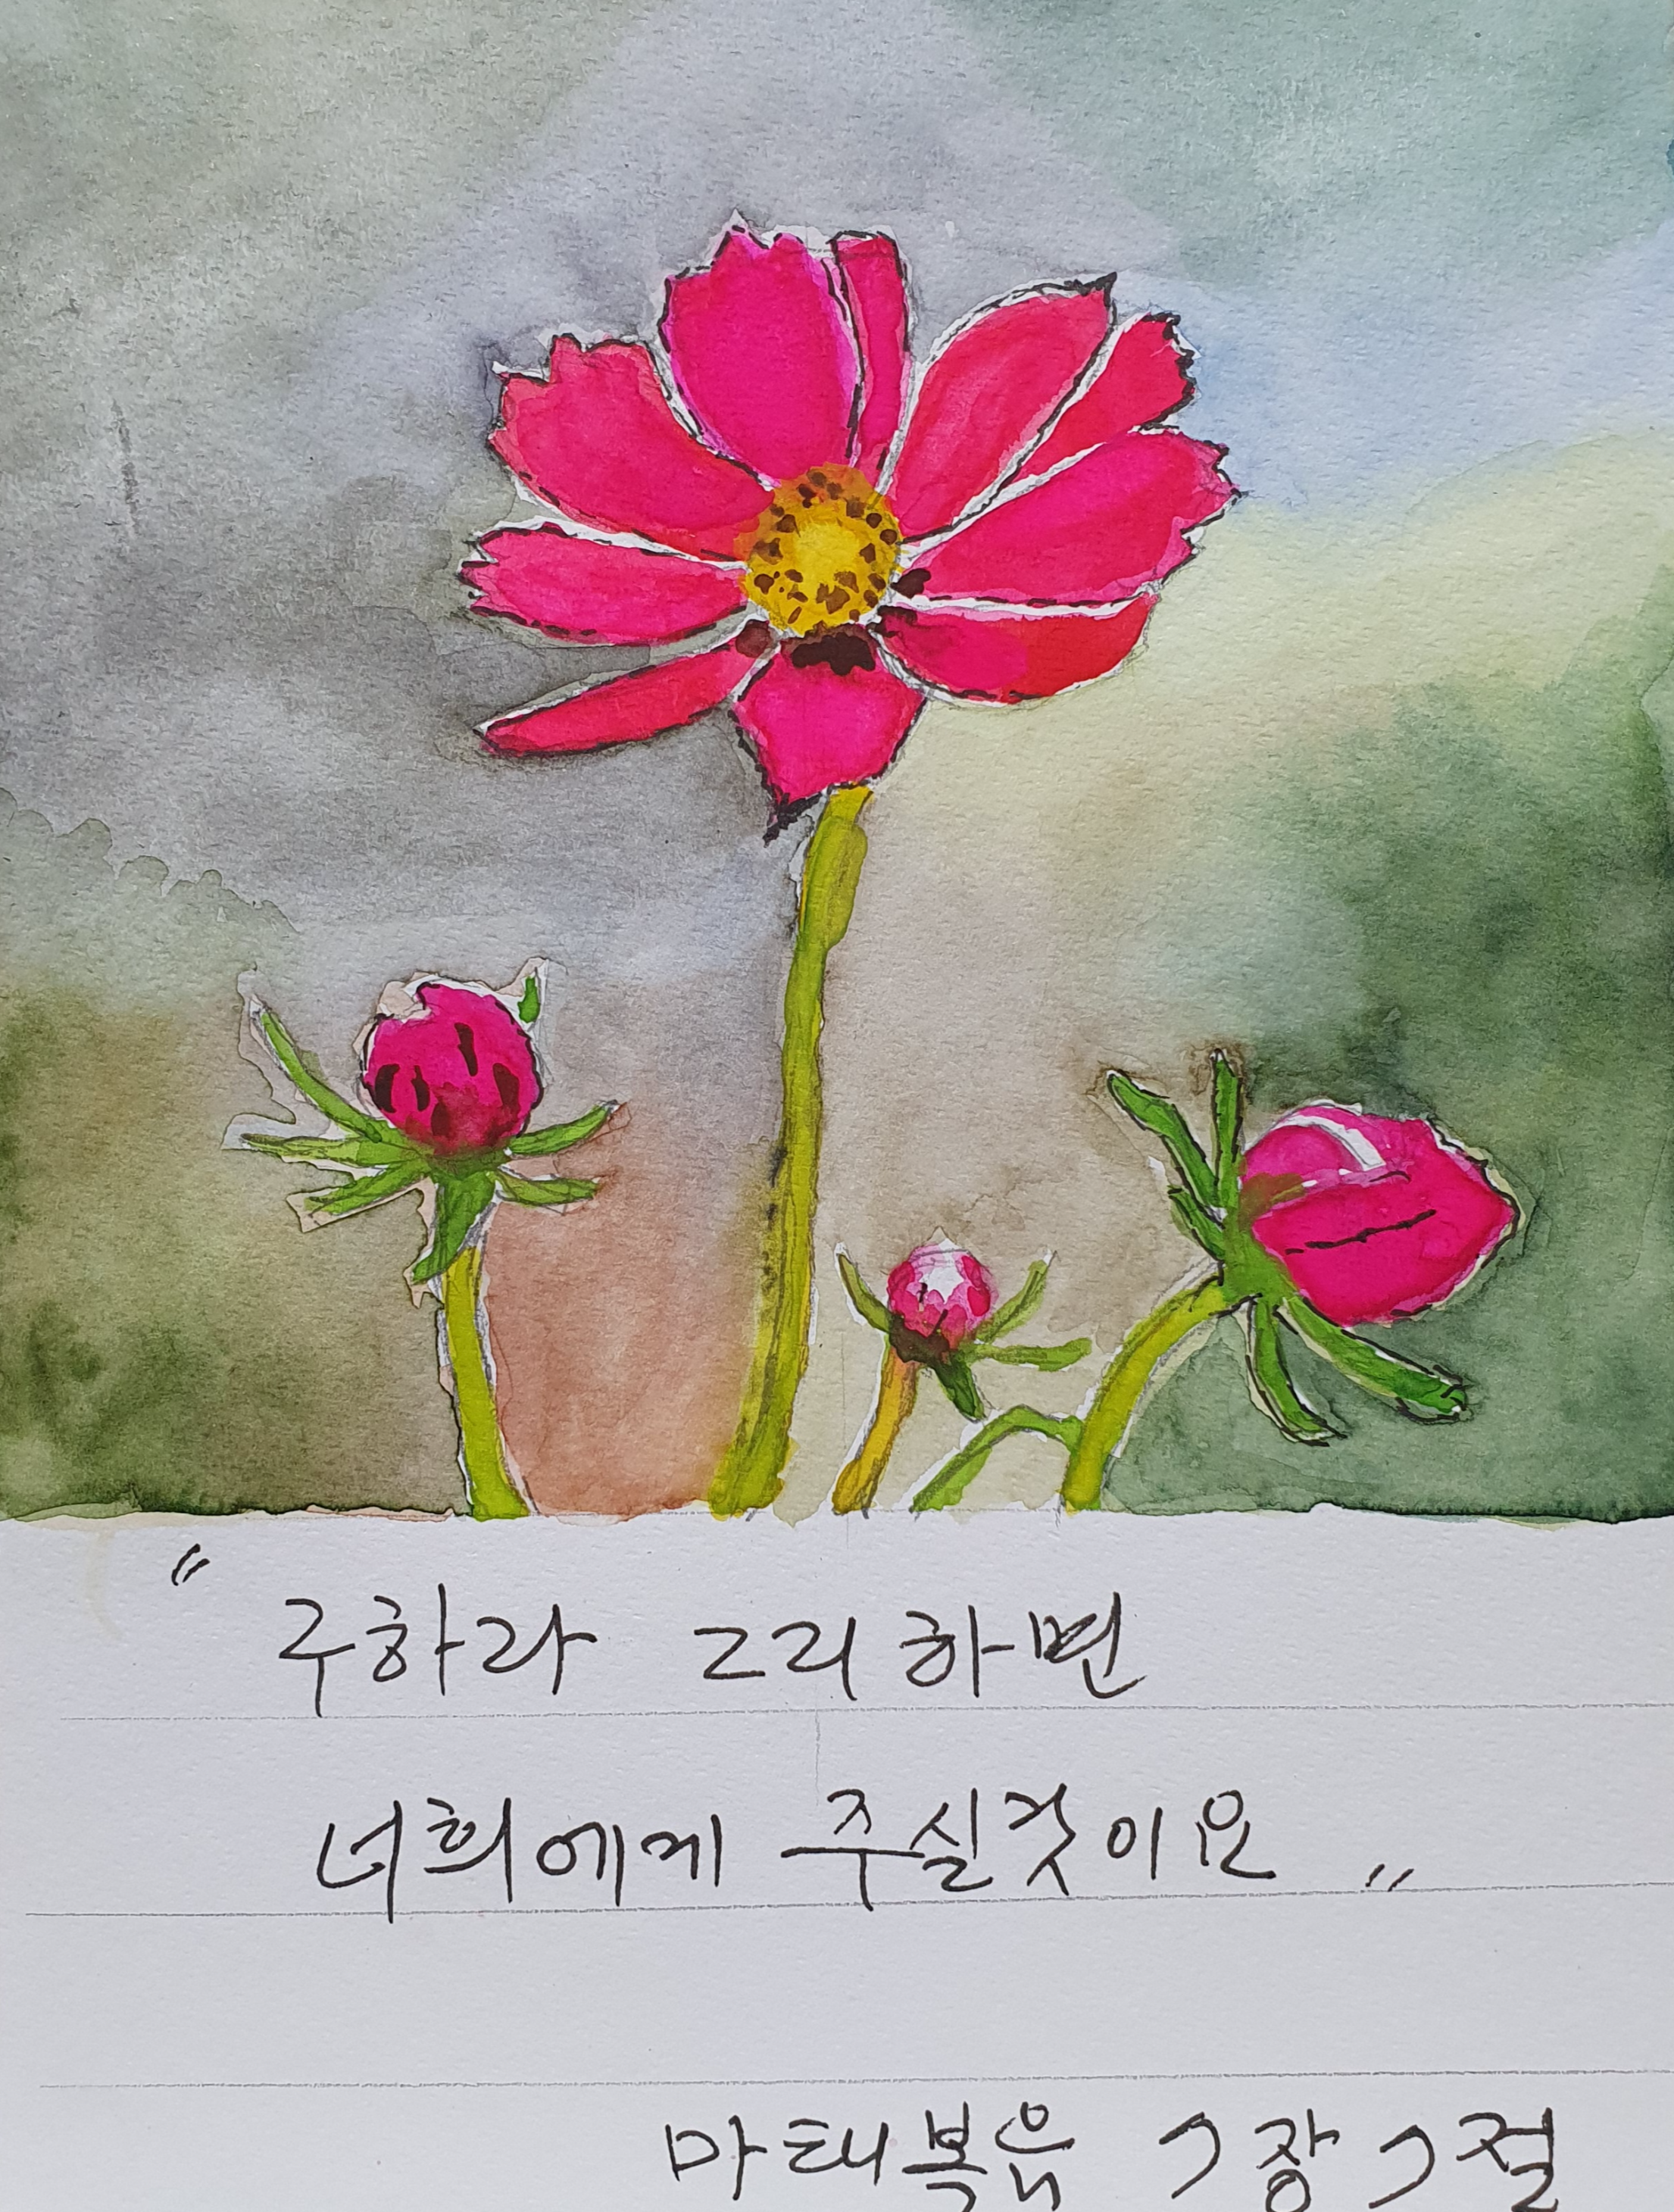 "구하라 그리하면
너희에게 주실것이요"
마태복음 7장 7절